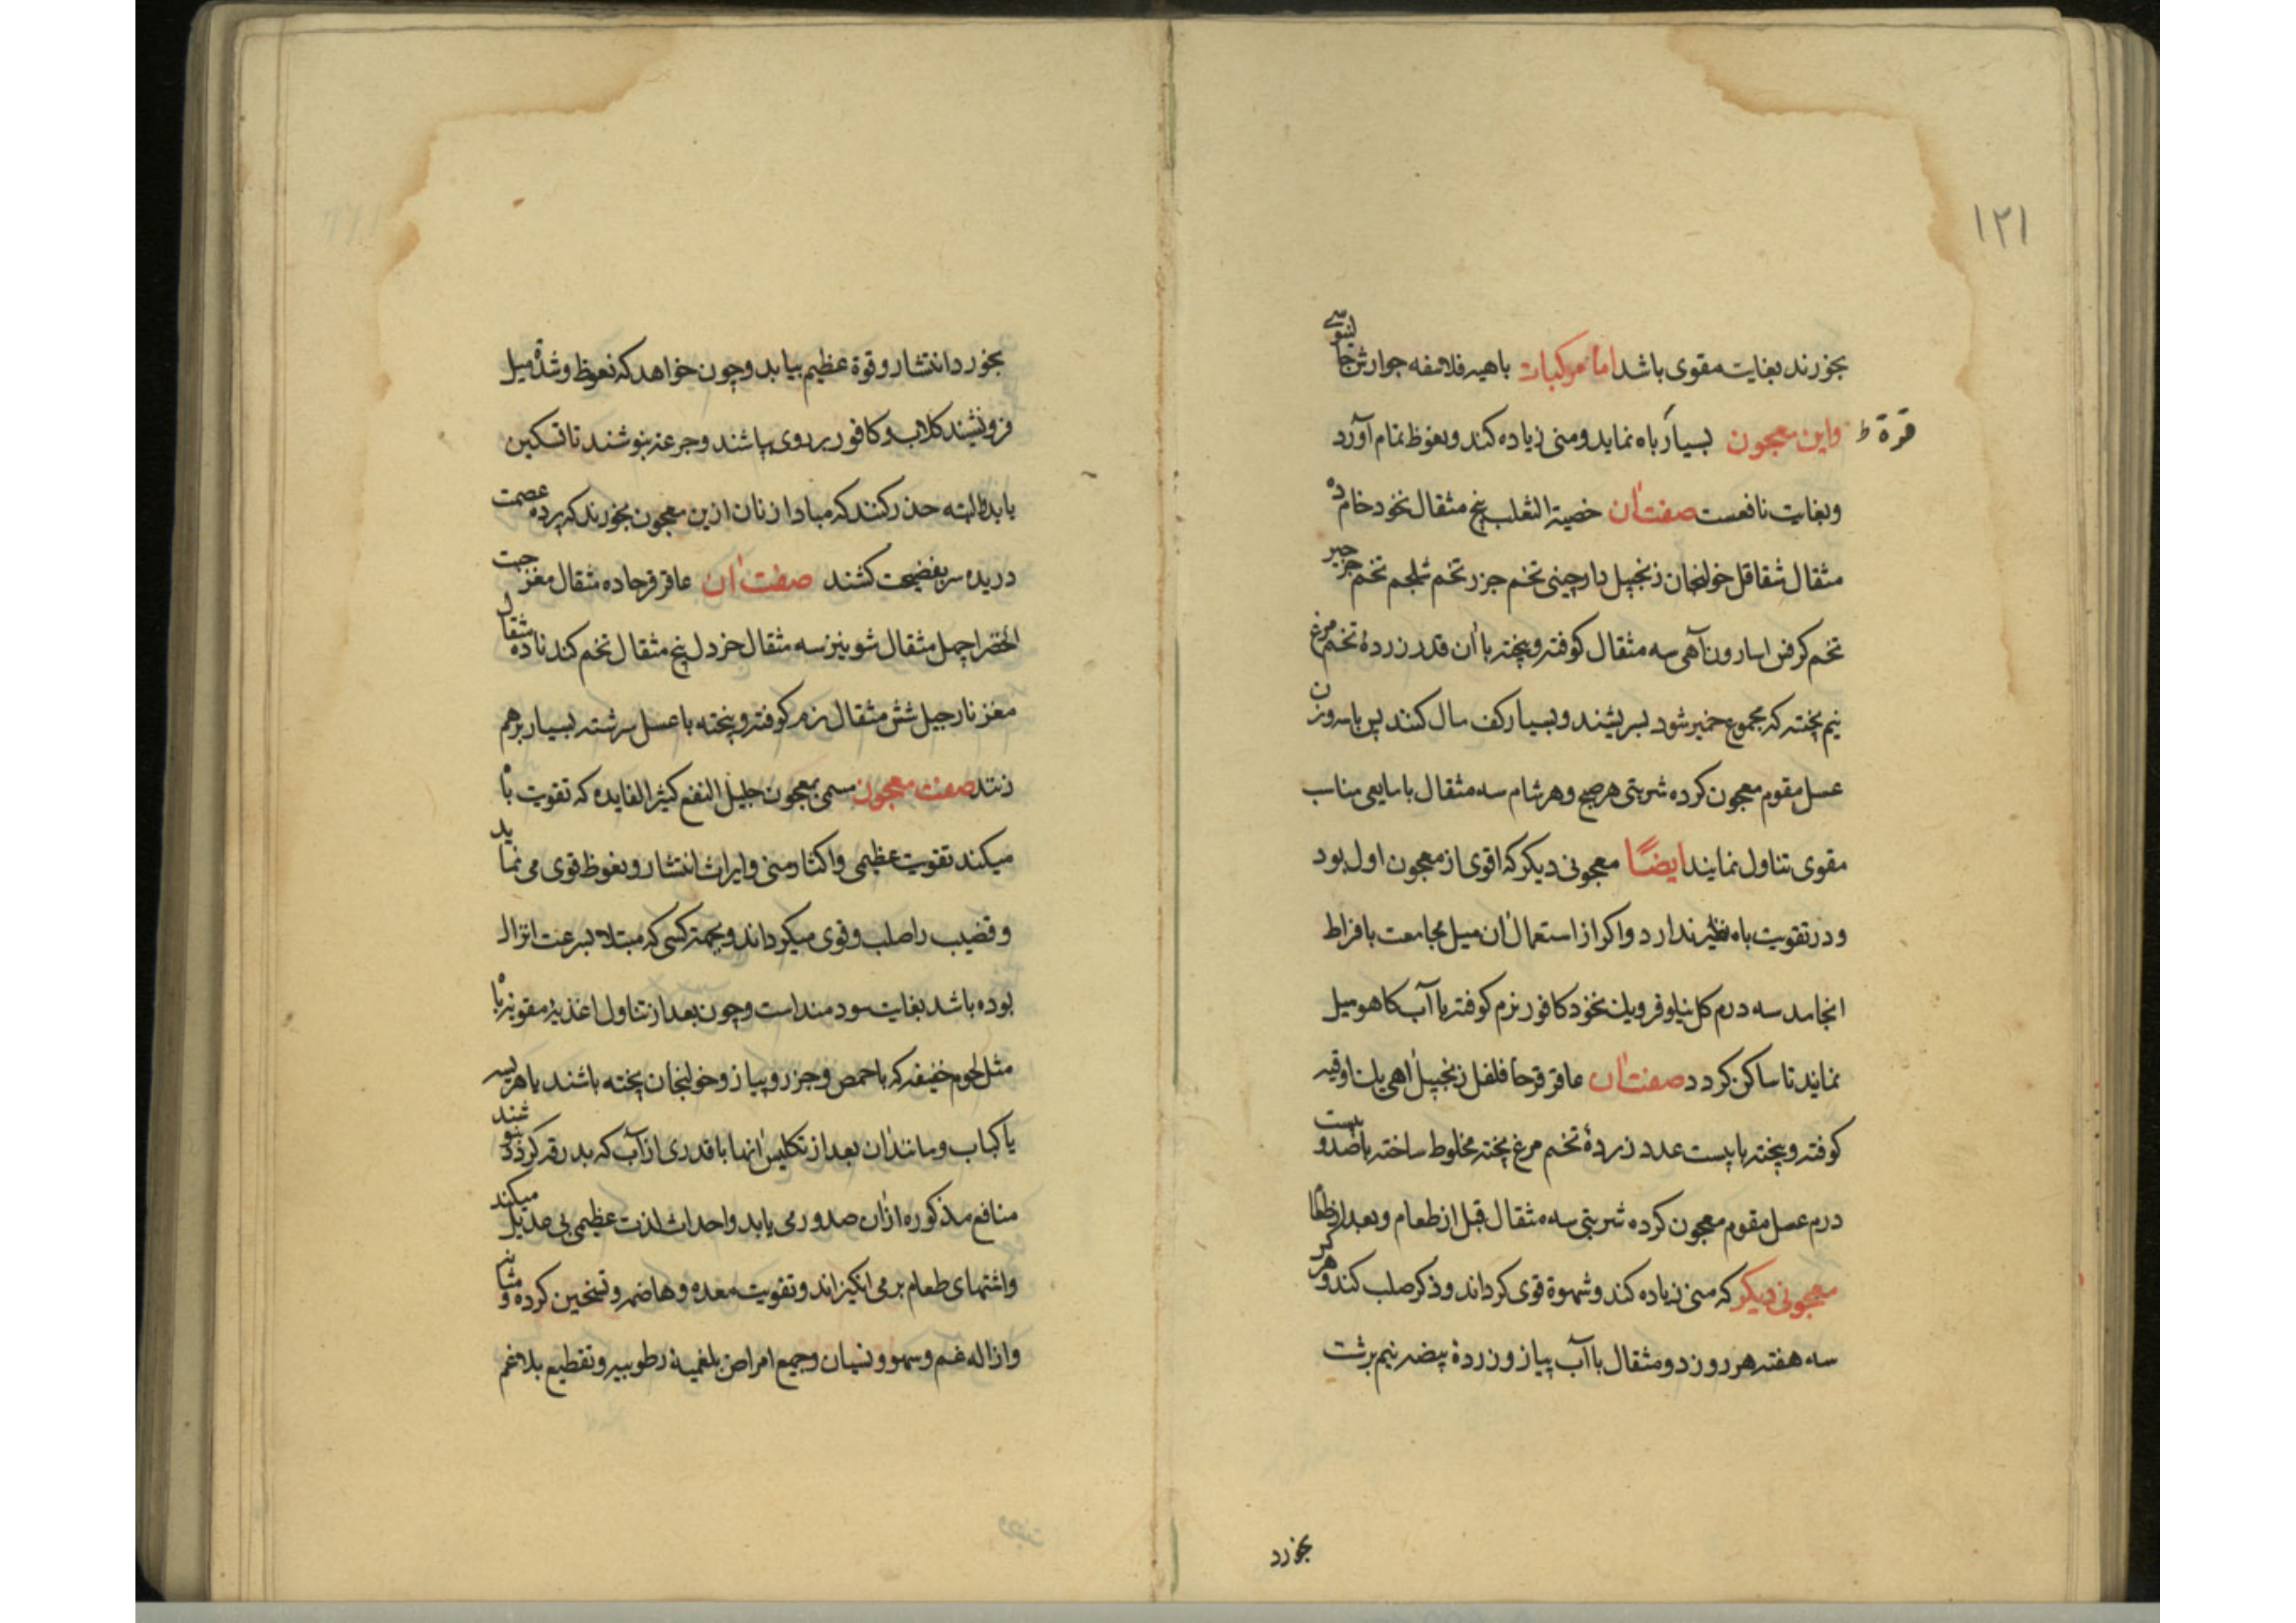 ۱۲۱
بخورند بغایت مقوی باشد اما مرکبات باهیه فلاسفه جوارش جالینوسی
واین معجون بسیار باه نماید ومنی زیاده کند ونعوظ تمام آورد
قوة ط
وبغایت نافعست صفت آن خصیة الثعلب پنج مثقال نخود خام ده
مثقال شقاقل خولنجان زنجبیل دارچینی تخم جزر تخم شلجم تخم جرجیر
تخم کرفس اسارون آهی سه مثقال کوفته وپخته با آن قدر زردهٔ تخم مرغ
نیم پخته که مجموع خمیر شود بسریشند وبسیار کف مال کنند پس با سه وزن
عسل مقوم معجون کرده شربتی هر صبح وهر شام سه مثقال با مایعی مناسب
مقوی تناول نمایند ایضًا معجونی دیکر که اقوی از معجون اول بود
ودر تقویت باه نظیر ندارد واکر از استعمال آن میل مجامعت بافراط
انجامد سه درم کل نیلوفر ویک نخود کافور نرم کوفته با آب کاهو میل
نماید تا ساکن کردد صفت آن عاقر قرحا فلفل زنجبیل آهی یک اوقیه
کوفته وپخته با بیست عدد زردهٔ تخم مرغ پخته مخلوط ساخته با صد وبیست
درم عسل مقوم معجون کرده شربتی سه مثقال قبل از طعام وبعد از طعام
معجونی دیکر که منی زیاده کند وشهوة قوی کرداند وذکر صلب کند وهر کر
سه هفته هر روز دو مثقال با آب پیاز وزردهٔ بیضه نیم برشت
بخورد
بخورد انتشار وقوة عظیم بیابد وچون خواهد که نعوظ وشدة میل
فرو نشیند کلاب وکافور بر روی بپاشند وجرعه بنوشند تا تسکین
یابد والبته حذر کنند که مبادا زنان ازین معجون بخورند که پرده عصمت
دریده سر بفضیحت کشند صفت آن عاقر قرحا ده مثقال مغز حبت
اخضرا چهل مثقال شونیز سه مثقال خردل پنج مثقال تخم کندنا ده مثقال
مغز نارجیل شش مثقال نرم کوفته وپخته با عسل سرشته بسیار برهم
زنند صفت معجون مسمی بمعجون جلیل النفع کثیر الفایده که تقویت باه
میکند تقویت عظیمی واکثار منی وایراث انتشار ونعوظ قوی می نماید
وقضیب را صلب وقوی میکرداند وبجهته کسی که مبتلا بسرعت انزال
بوده باشد بغایت سودمند است وچون بعد از تناول اغذیه مقویه باه
مثل لحوم خفیفه که با حمص وجزر وپیاز وخولنجان پخته باشند یا هریسه
یا کباب ومانند آن بعد از تکلیس آنها با قدری از آب که بدرقه کردد بنوشند
منافع مذکوره از آن صدور می یابد واحداث لذت عظیمی بی عدیل میکند
واشتهای طعام بر می انکیزاند وتقویت معده وهاضمه وتسخین کرده ومثانه
وازاله غم وسهو ونسیان وجمیع امراض بلغمیه رطوبیه وتقطیع بلاغم